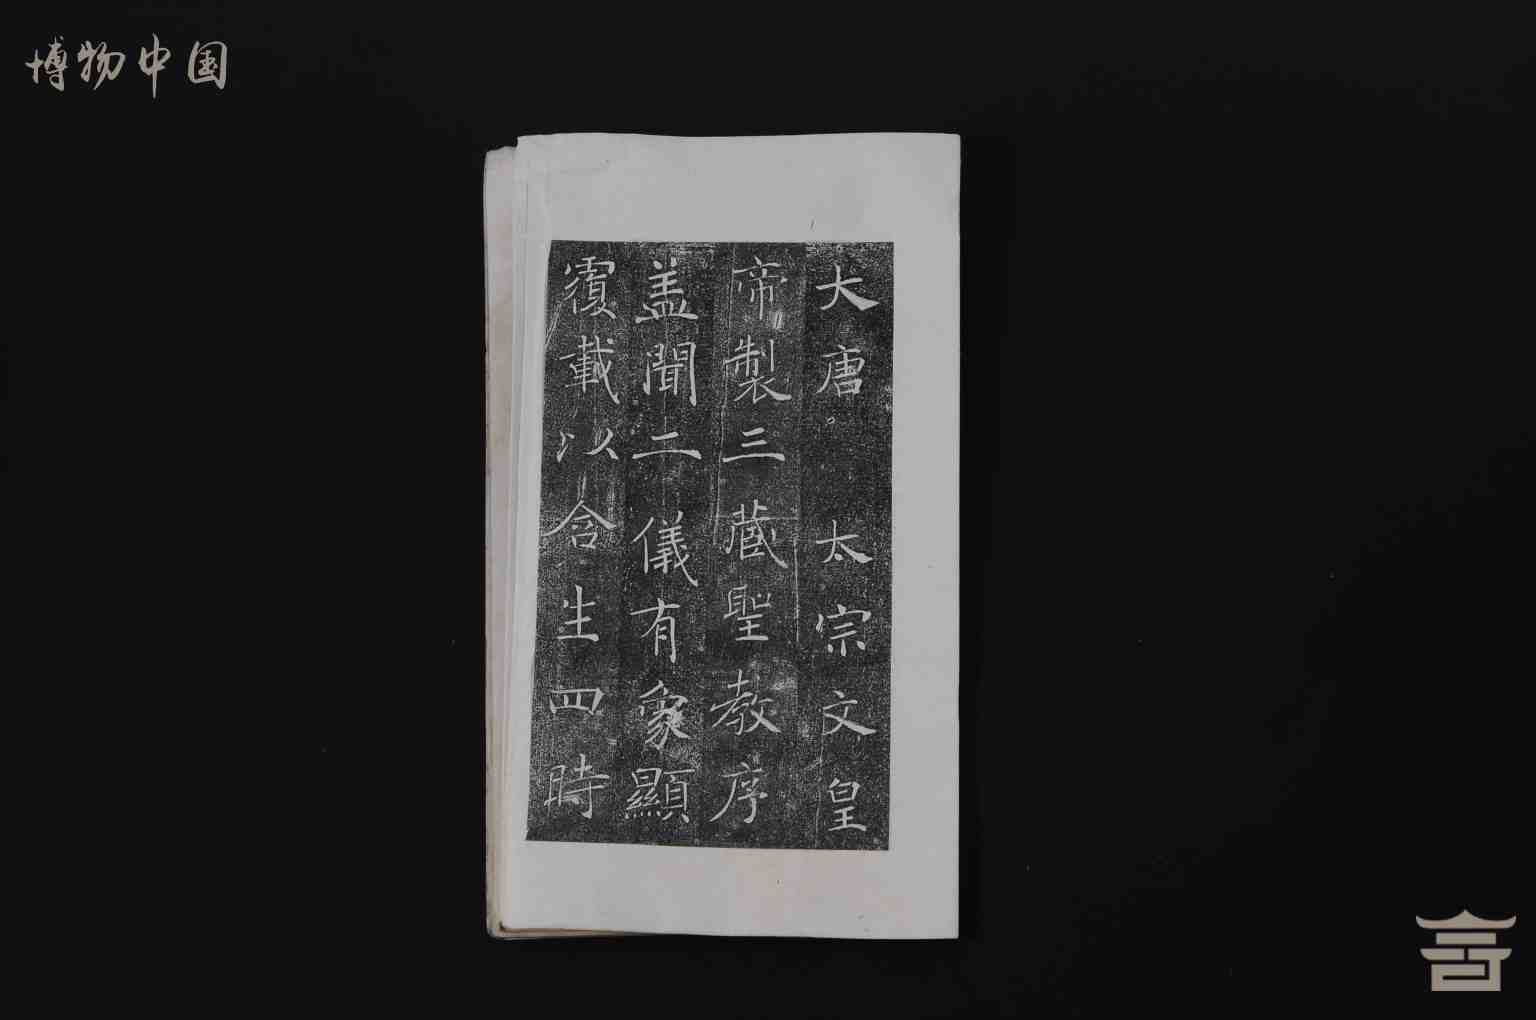 博物中国
大唐 太宗文皇
帝製三藏聖教序
盖聞二儀有象顯
覆載以含生四時